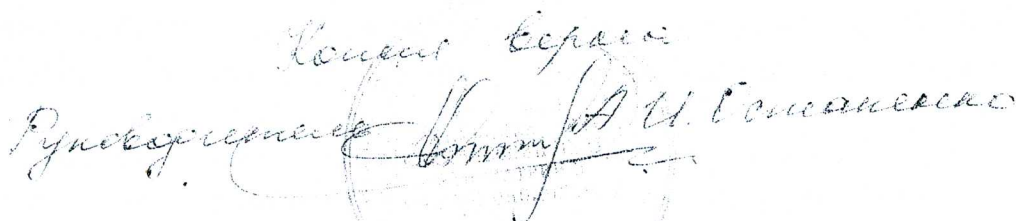 Копия верна
Руководитель А.И. Остапенко